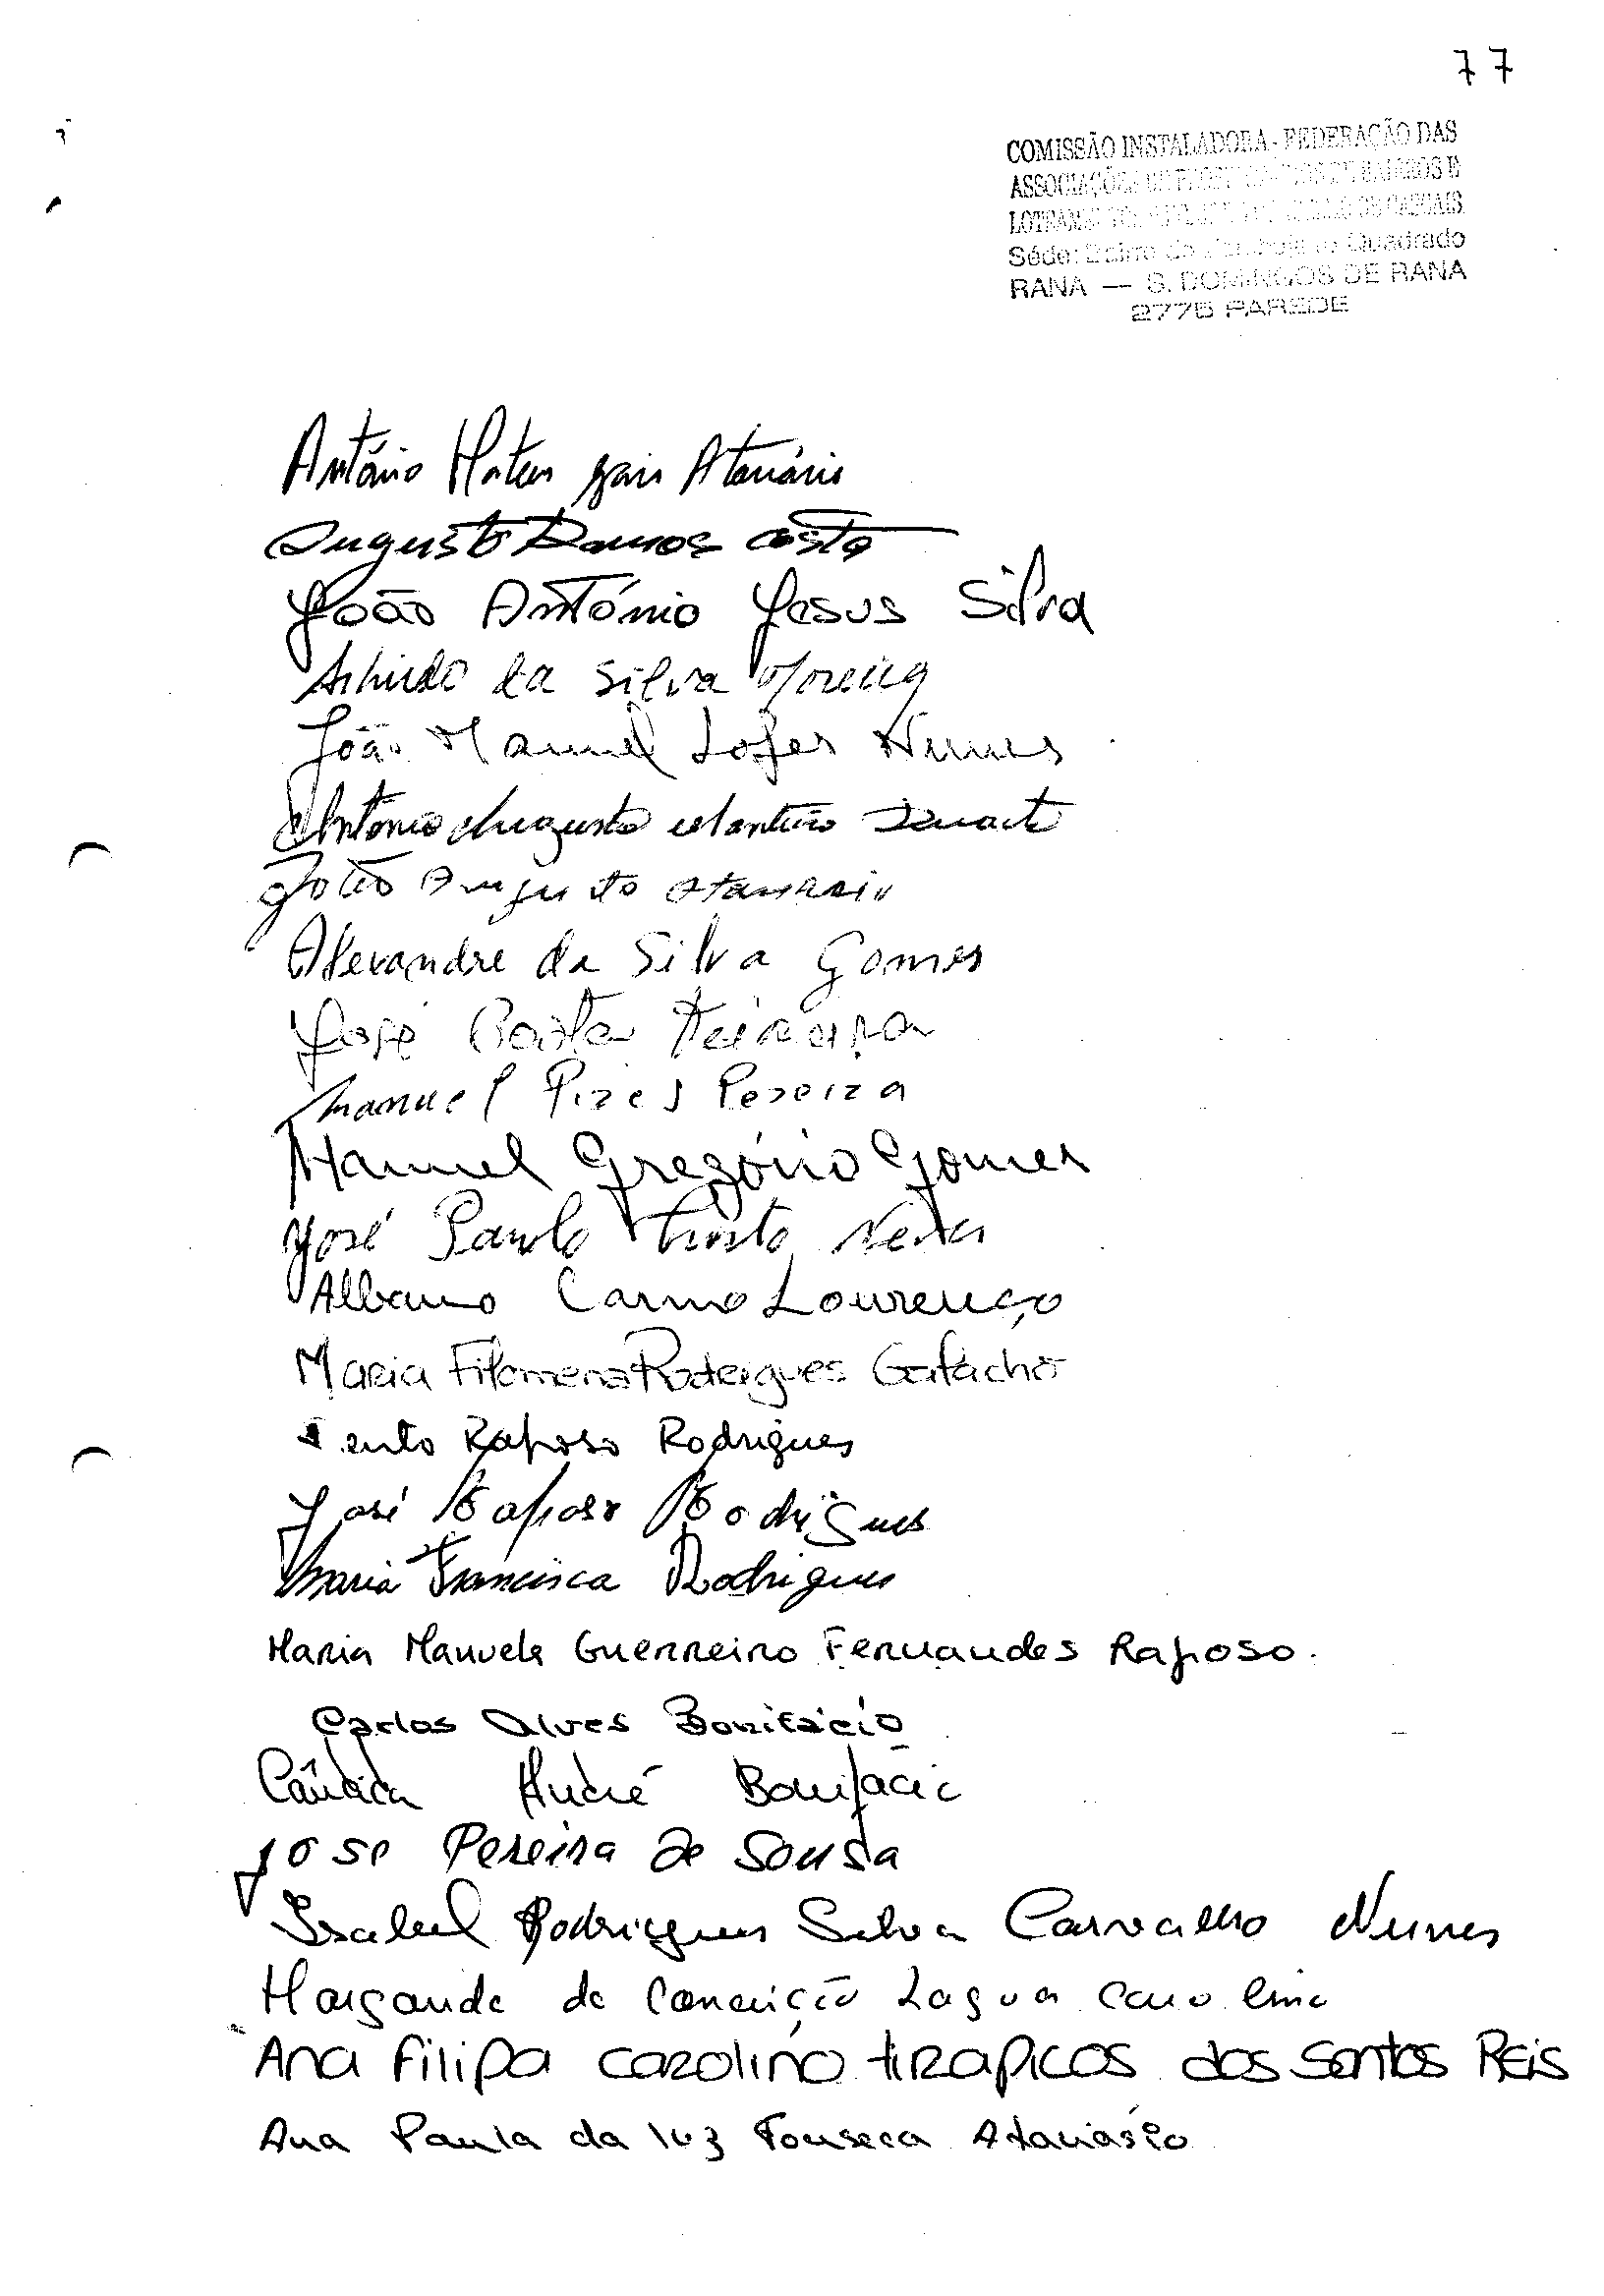 77
COMISSÃO INSTALADORA - FEDERAÇÃO DAS
ASSOCIAÇÕES DE BAIRROS E
DE CASCAIS
Séde: Bairro Quadrado
RANA — S. DOMINGOS DE RANA
2775 PAREDE
António Mateus Atanásio
Augusto Ramos Costa
João António Jesus Silva
da Silva Moreira
João Manuel Lopes Nunes
António Augusto Monteiro Duarte
João Augusto Atanasio
Alexandre da Silva Gomes
José Costa Teixeira
Manuel Pires Pereira
Manuel Gregório Gomes
José Paulo Neves
Albano Carmo Lourenço
Maria Filomena Rodrigues Galacho
Bento Raposo Rodrigues
José Raposo Rodrigues
Maria Francisca Rodrigues
Maria Manuela Guerreiro Fernandes Raposo.
Carlos Alves Bonifácio
Cândida André Bonifácio
Jose Pereira de Sousa
Isabel Rodrigues Silva Carvalho Nunes
Margarida da Conceição Lagoa
Ana Filipa Carolino tirapicos dos Santos Reis
Ana Paula da luz Fonseca Atanásio